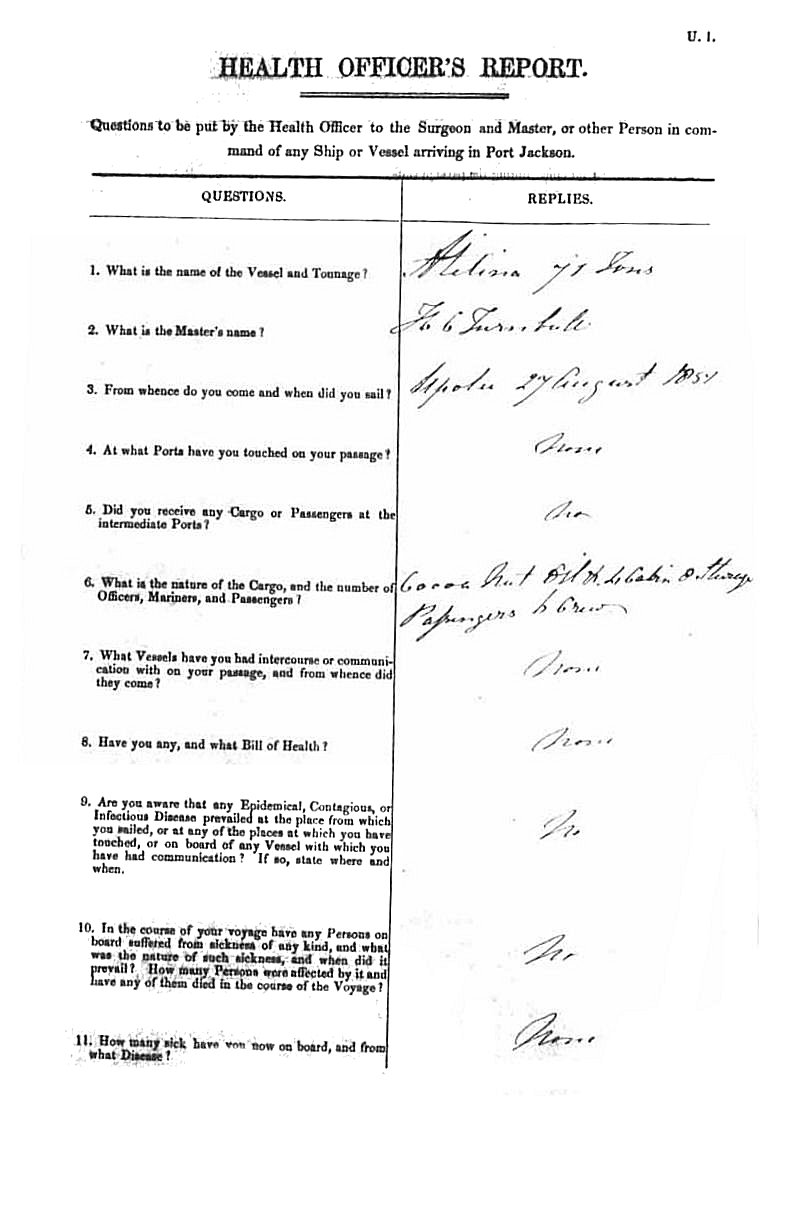 U. 1.
HEALTH OFFICER'S REPORT.
Questions to be put by the Health Officer to the Surgeon and Master, or other Person in com-
mand of any Ship or Vessel arriving in Port Jackson.
QUESTIONS.
REPLIES.
1. What is the name of the Vessel and Tonnage?
71 Tons
2. What is the Master's name?
H C Turnbull
3. From whence do you come and when did you sail?
Upolu 27 August 1851
4. At what Ports have you touched on your passage?
None
5. Did you receive any Cargo or Passengers at the
intermediate Ports?
No
6. What is the nature of the Cargo, and the number of
Officers, Mariners, and Passengers?
Cocoa Nut Oil &c 4 Cabin 8 Steerage
Passengers 6 Crew
7. What Vessels have you had intercourse or communi-
cation with on your passage, and from whence did
they come?
None
8. Have you any, and what Bill of Health?
None
9. Are you aware that any Epidemical, Contagious, or
Infectious Disease prevailed at the place from which
you sailed, or at any of the places at which you have
touched, or on board of any Vessel with which you
have had communication? If so, state where and
when.
No
10. In the course of your voyage have any Persons on
board suffered from sickness of any kind, and what
was the nature of such sickness, and when did it
prevail? How many Persons were affected by it and
have any of them died in the course of the Voyage?
No
11. How many sick have you now on board, and from
what Disease?
None